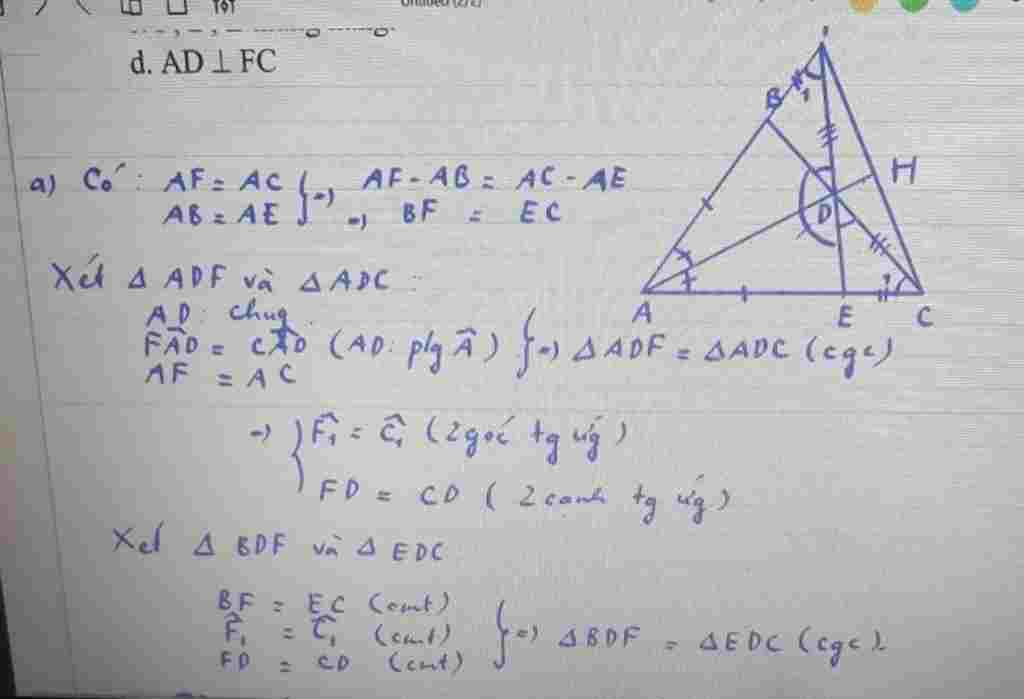 d. AD ⊥ FC
a) Có: AF = AC } => AF - AB = AC - AE
AB = AE => BF = EC
Xét Δ ADF và Δ ADC :
AD: chug
FÂD = CÂD (AD: p/g Â) } => Δ ADF = Δ ADC (cgc)
AF = AC
=> { F̂₁ = Ĉ₁ (2 góc tg ứg)
FD = CD (2 cạnh tg ứg)
Xét Δ BDF và Δ EDC
BF = EC (cmt)
F̂₁ = Ĉ₁ (cmt) } => Δ BDF = Δ EDC (cgc).
FD = CD (cmt)
B
1
H
D
A
E
1
C